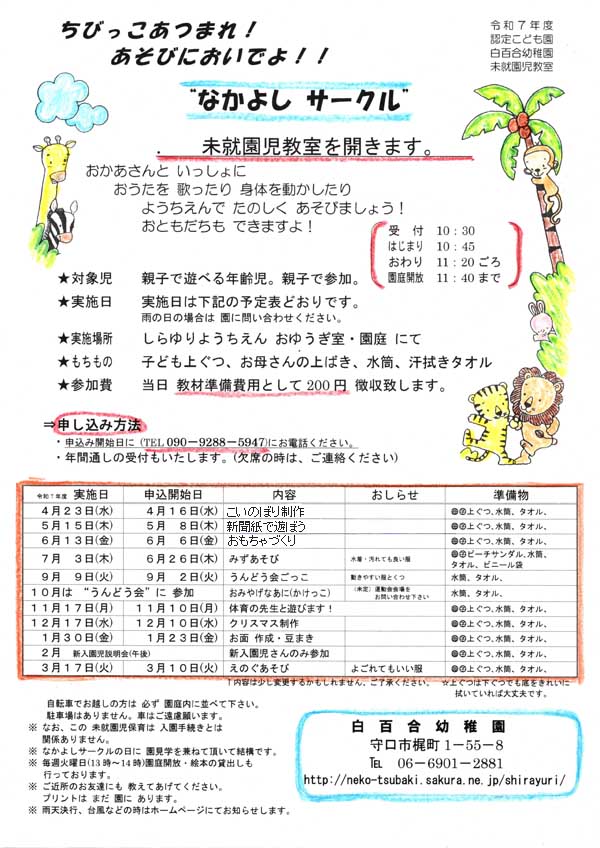 ちびっこあつまれ！
あそびにおいでよ！！
令和７年度
認定こども園
白百合幼稚園
未就園児教室
"なかよし サークル"
. 未就園児教室を開きます。
おかあさんと いっしょに
おうたを 歌ったり 身体を動かしたり
ようちえんで たのしく あそびましょう！
おともだちも できますよ！
受 付 10：30
はじまり 10：45
おわり 11：20 ごろ
園庭開放 11：40 まで
★対象児 親子で遊べる年齢児。親子で参加。
★実施日 実施日は下記の予定表どおりです。
雨の日の場合は 園に問い合わせください。
★実施場所 しらゆりようちえん おゆうぎ室・園庭 にて
★もちもの 子ども上ぐつ、お母さんの上ばき、水筒、汗拭きタオル
★参加費 当日 教材準備費用として 200 円 徴収致します。
⇒申し込み方法
・申込み開始日に (TEL 090－9288－5947)にお電話ください。
・年間通しの受付もいたします。(欠席の時は、ご連絡ください)
令和７年度 実施日 申込開始日 内容 おしらせ 準備物
４月２３日(水) ４月１６日(水) こいのぼり制作 上ぐつ、水筒、タオル、
５月１５日(木) ５月 ８日(木) 新聞紙で遊ぼう 上ぐつ、水筒、タオル、
６月１３日(金) ６月 ６日(金) おもちゃづくり 上ぐつ、水筒、タオル、
７月 ３日(木) ６月２６日(木) みずあそび 水着・汚れても良い服 ビーチサンダル、水筒、
タオル、ビニール袋
９月 ９日(火) ９月 ２日(火) うんどう会ごっこ 動きやすい服とくつ 水筒、タオル、
１０月は “うんどう会”に 参加 おみやげなあに(かけっこ) (未定)運動会会場を
お問い合わせ下さい 水筒、タオル、
１１月１７日(月) １１月１０日(月) 体育の先生と遊びます！ 上ぐつ、水筒、タオル、
１２月１７日(水) １２月１０日(水) クリスマス制作 上ぐつ、水筒、タオル、
１月３０日(金) １月２３日(金) お面 作成・豆まき 上ぐつ、水筒、タオル、
２月 新入園児説明会(午後) 新入園児さんのみ参加 上ぐつ、水筒、タオル、
３月１７日(火) ３月１０日(火) えのぐあそび よごれてもいい服 上ぐつ、水筒、タオル、
↑内容は少し変更するかもしれません、ご了承ください。 ☆上ぐつは下ぐつでも底をきれいに
拭いていれば大丈夫です。
自転車でお越しの方は 必ず 園庭内に並べて下さい。
駐車場はありません。車はご遠慮願います。
※ なお、この 未就園児保育は 入園手続きとは
関係ありません。
※ なかよしサークルの日に 園見学を兼ねて頂いて結構です。
※ 毎週火曜日(13 時～14 時)園庭開放・絵本の貸出しも
行っております。
※ ご近所のお友達にも 教えてあげてください。
プリントは まだ 園に あります。
※ 雨天決行、台風などの時はホームページにてお知らせします。
白 百 合 幼 稚 園
守口市梶町１－５５－８
℡ ０６－６９０１－２８８１
http://neko-tsubaki.sakura.ne.jp/shirayuri/